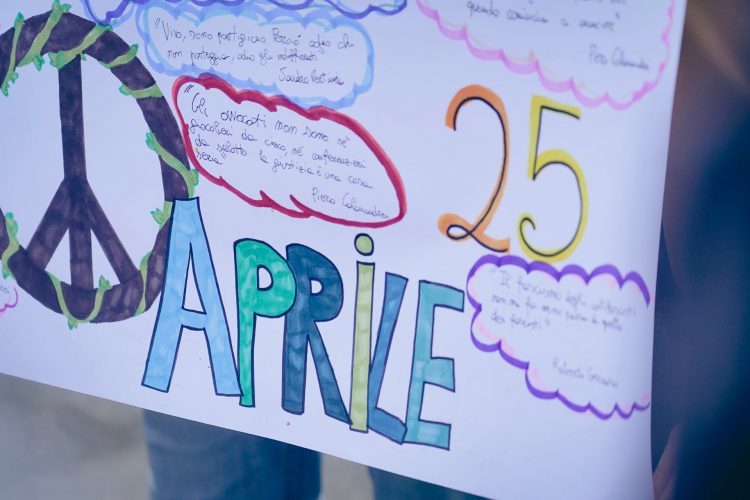 quando comincia a
Piero Calamandrei
"Vivo, sono partigiano. Perciò odio chi
non parteggia, odio gli indifferenti"
Sandro Pertini
"Gli avvocati non sono nè
giocolieri da circo, nè conferenzieri
da salotto la giustizia è una cosa
seria"
Piero Calamandrei
25
APRILE
"Il fascismo degli antifascisti
non mi fa meno paura di quello
dei fascisti"
Roberto Gervaso